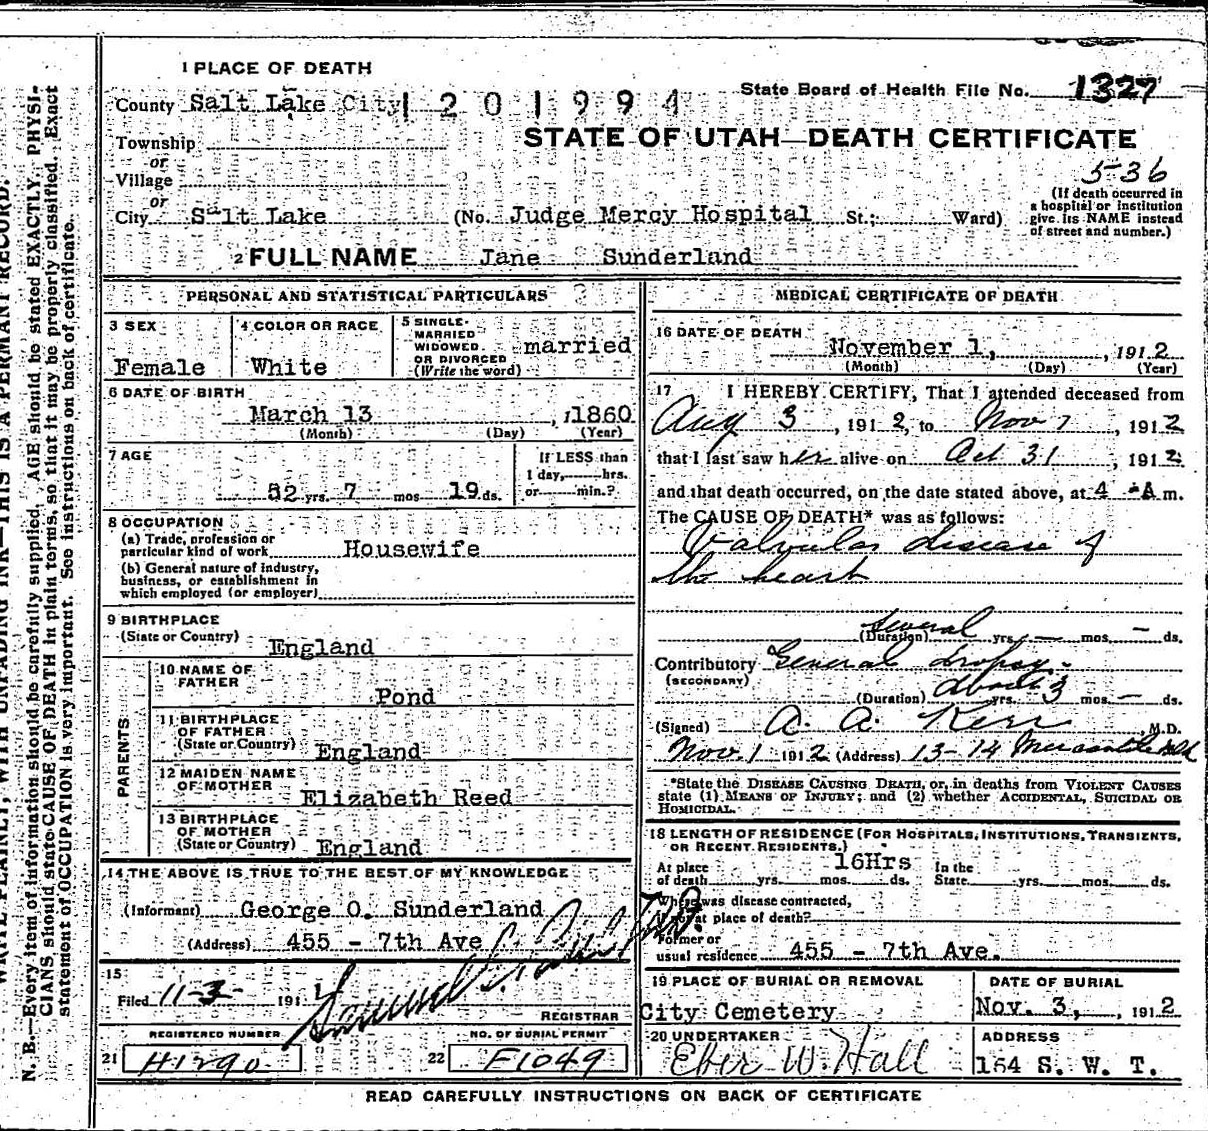 1 PLACE OF DEATH
County Salt Lake City 1201994
State Board of Health File No. 1327
Township
or
Village
or
STATE OF UTAH—DEATH CERTIFICATE
536
City Salt Lake (No. Judge Mercy Hospital St.; Ward)
(If death occurred in
a hospital or institution
give its NAME instead
of street and number.)
2 FULL NAME Jane Sunderland
PERSONAL AND STATISTICAL PARTICULARS
3 SEX
Female
4 COLOR OR RACE
White
5 SINGLE
MARRIED
WIDOWED
OR DIVORCED
(Write the word)
married
6 DATE OF BIRTH
March 13, 1860
(Month) (Day) (Year)
7 AGE
52 yrs. 7 mos 19 ds.
If LESS than
1 day, hrs.
or min.?
8 OCCUPATION
(a) Trade, profession or
particular kind of work Housewife
(b) General nature of industry,
business, or establishment in
which employed (or employer)
9 BIRTHPLACE
(State or Country) England
PARENTS
10 NAME OF
FATHER
Pond
11 BIRTHPLACE
OF FATHER
(State or Country) England
12 MAIDEN NAME
OF MOTHER
Elizabeth Reed
13 BIRTHPLACE
OF MOTHER
(State or Country) England
14 THE ABOVE IS TRUE TO THE BEST OF MY KNOWLEDGE
(Informant) George O. Sunderland
(Address) 455 - 7th Ave
15
Filed 11-3- 191
Samuel
REGISTRAR
REGISTERED NUMBER
21 H1290
NO. OF BURIAL PERMIT
22 F1049
MEDICAL CERTIFICATE OF DEATH
16 DATE OF DEATH
November 1, , 1912
(Month) (Day) (Year)
17 I HEREBY CERTIFY, That I attended deceased from
Aug 3, 1912, to Nov 1, 1912
that I last saw her alive on Oct 31, 1912
and that death occurred, on the date stated above, at 4 -A m.
The CAUSE OF DEATH* was as follows:
Valvular disease of
the heart
several
(Duration) yrs. — mos. — ds.
Contributory General dropsy
(SECONDARY)
(Duration) about 3 yrs. mos. — ds.
(Signed) A. A. Kerr M.D.
Nov. 1 1912 (Address) 13-14 Mercantile Bld
*State the DISEASE CAUSING DEATH, or, in deaths from VIOLENT CAUSES
state (1) MEANS OF INJURY; and (2) whether ACCIDENTAL, SUICIDAL OR
HOMICIDAL.
18 LENGTH OF RESIDENCE (FOR HOSPITALS, INSTITUTIONS, TRANSIENTS,
OR RECENT RESIDENTS.)
At place
of death yrs. mos. 16Hrs ds. In the
State yrs. mos. ds.
Where was disease contracted,
if not at place of death?
Former or
usual residence 455 - 7th Ave.
19 PLACE OF BURIAL OR REMOVAL
City Cemetery
DATE OF BURIAL
Nov. 3, , 1912
20 UNDERTAKER
Eber W. Hall
ADDRESS
164 S. W. T.
READ CAREFULLY INSTRUCTIONS ON BACK OF CERTIFICATE
WRITE PLAINLY, WITH UNFADING INK—THIS IS A PERMANT RECORD.
N. B.—Every item of information should be carefully supplied. AGE should be stated EXACTLY. PHYSI-
CIANS should state CAUSE OF DEATH in plain terms, so that it may be properly classified. Exact
statement of OCCUPATION is very important. See instructions on back of certificate.